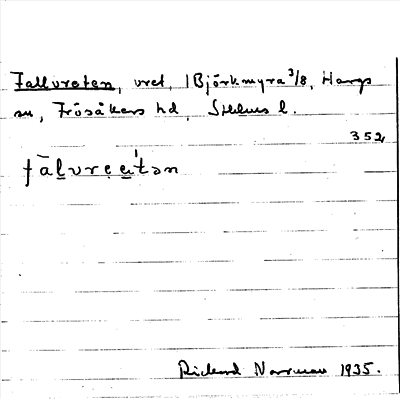 Fallvreten, vret, 1 Björkmyra 3/8, Hargs
sn, Frösåkers hd, Sthlms l.
352,
fàlvree̍tən
Rickard Norrman 1935.